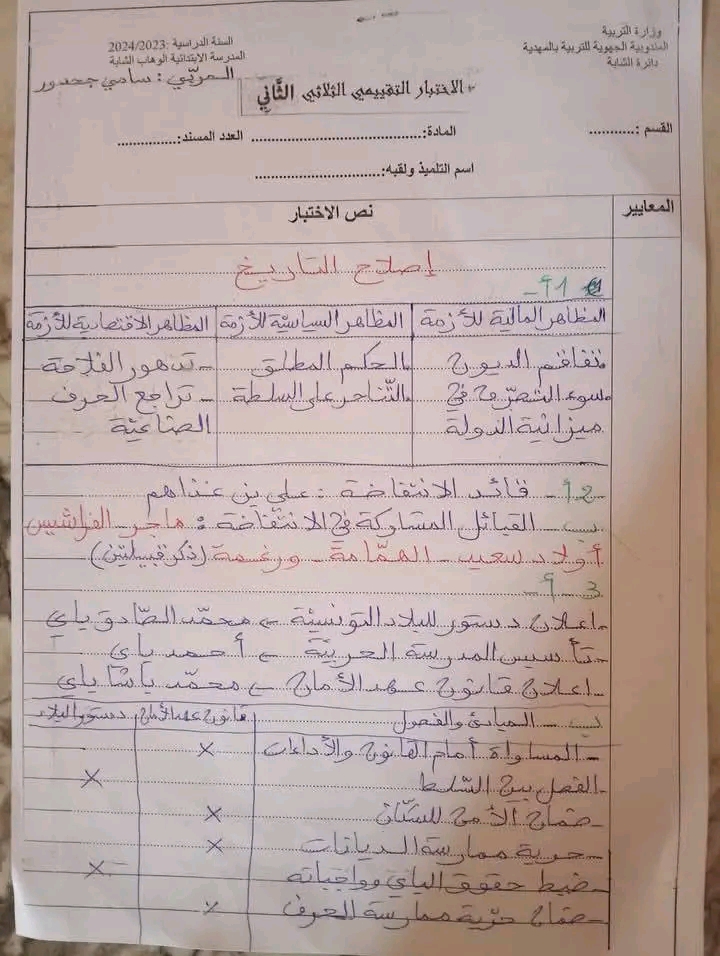 وزارة التربية
المندوبية الجهوية للتربية بالمهدية
دائرة الشابة
السنة الدراسية :2024/2023
المدرسة الابتدائية الوهاب الشابة
المربّي : سامي جحدور
الاختبار التقييمي الثلاثي الثّاني
القسم :...........
المادة:........................................
العدد المسند:......................
اسم التلميذ ولقبه:..............................
المعايير
نص الاختبار
إصلاح التاريخ
1أ-
المظاهر المالية للأزمة
المظاهر السياسيّة للأزمة
المظاهر الاقتصادية للأزمة
- تفاقم الديون
- الحكم المطلق
- تدهور الفلاحة
- سوء التصرّف في
- التّناحر على السلطة
- تراجع الحرف
ميزانية الدولة
الصناعيّة
2أ- قائد الانتفاضة : علي بن غذاهم
ب- القبائل المشاركة في الانتفاضة : ماجر- الفراشيش
أولاد سعيد- الهمّامة- ورغمة (ذكر قبيلتين)
3- أ-
- اعلان دستور للبلاد التونسيّة ← محمّد الصّادق باي
- تأسيس المدرسة الحربيّة ← أحمد باي
- اعلان قانون عهد الأمان ← محمّد باشا باي
ب- المبادئ والفصول
قانون عهد الأمان
دستور البلاد
- المساواة أمام القانون والأداءات
×
- الفصل بين السّلط
×
- ضمان الأمن للسكّان
×
- حرية ممارسة الديانات
×
- ضبط حقوق الباي وواجباته
×
- ضمان حرّية ممارسة الحرف
×